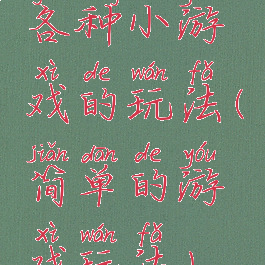 各种小游
xì de wán fǎ
戏的玩法(
jiǎn dān de yóu
简单的游
xì wán fǎ
戏玩法)